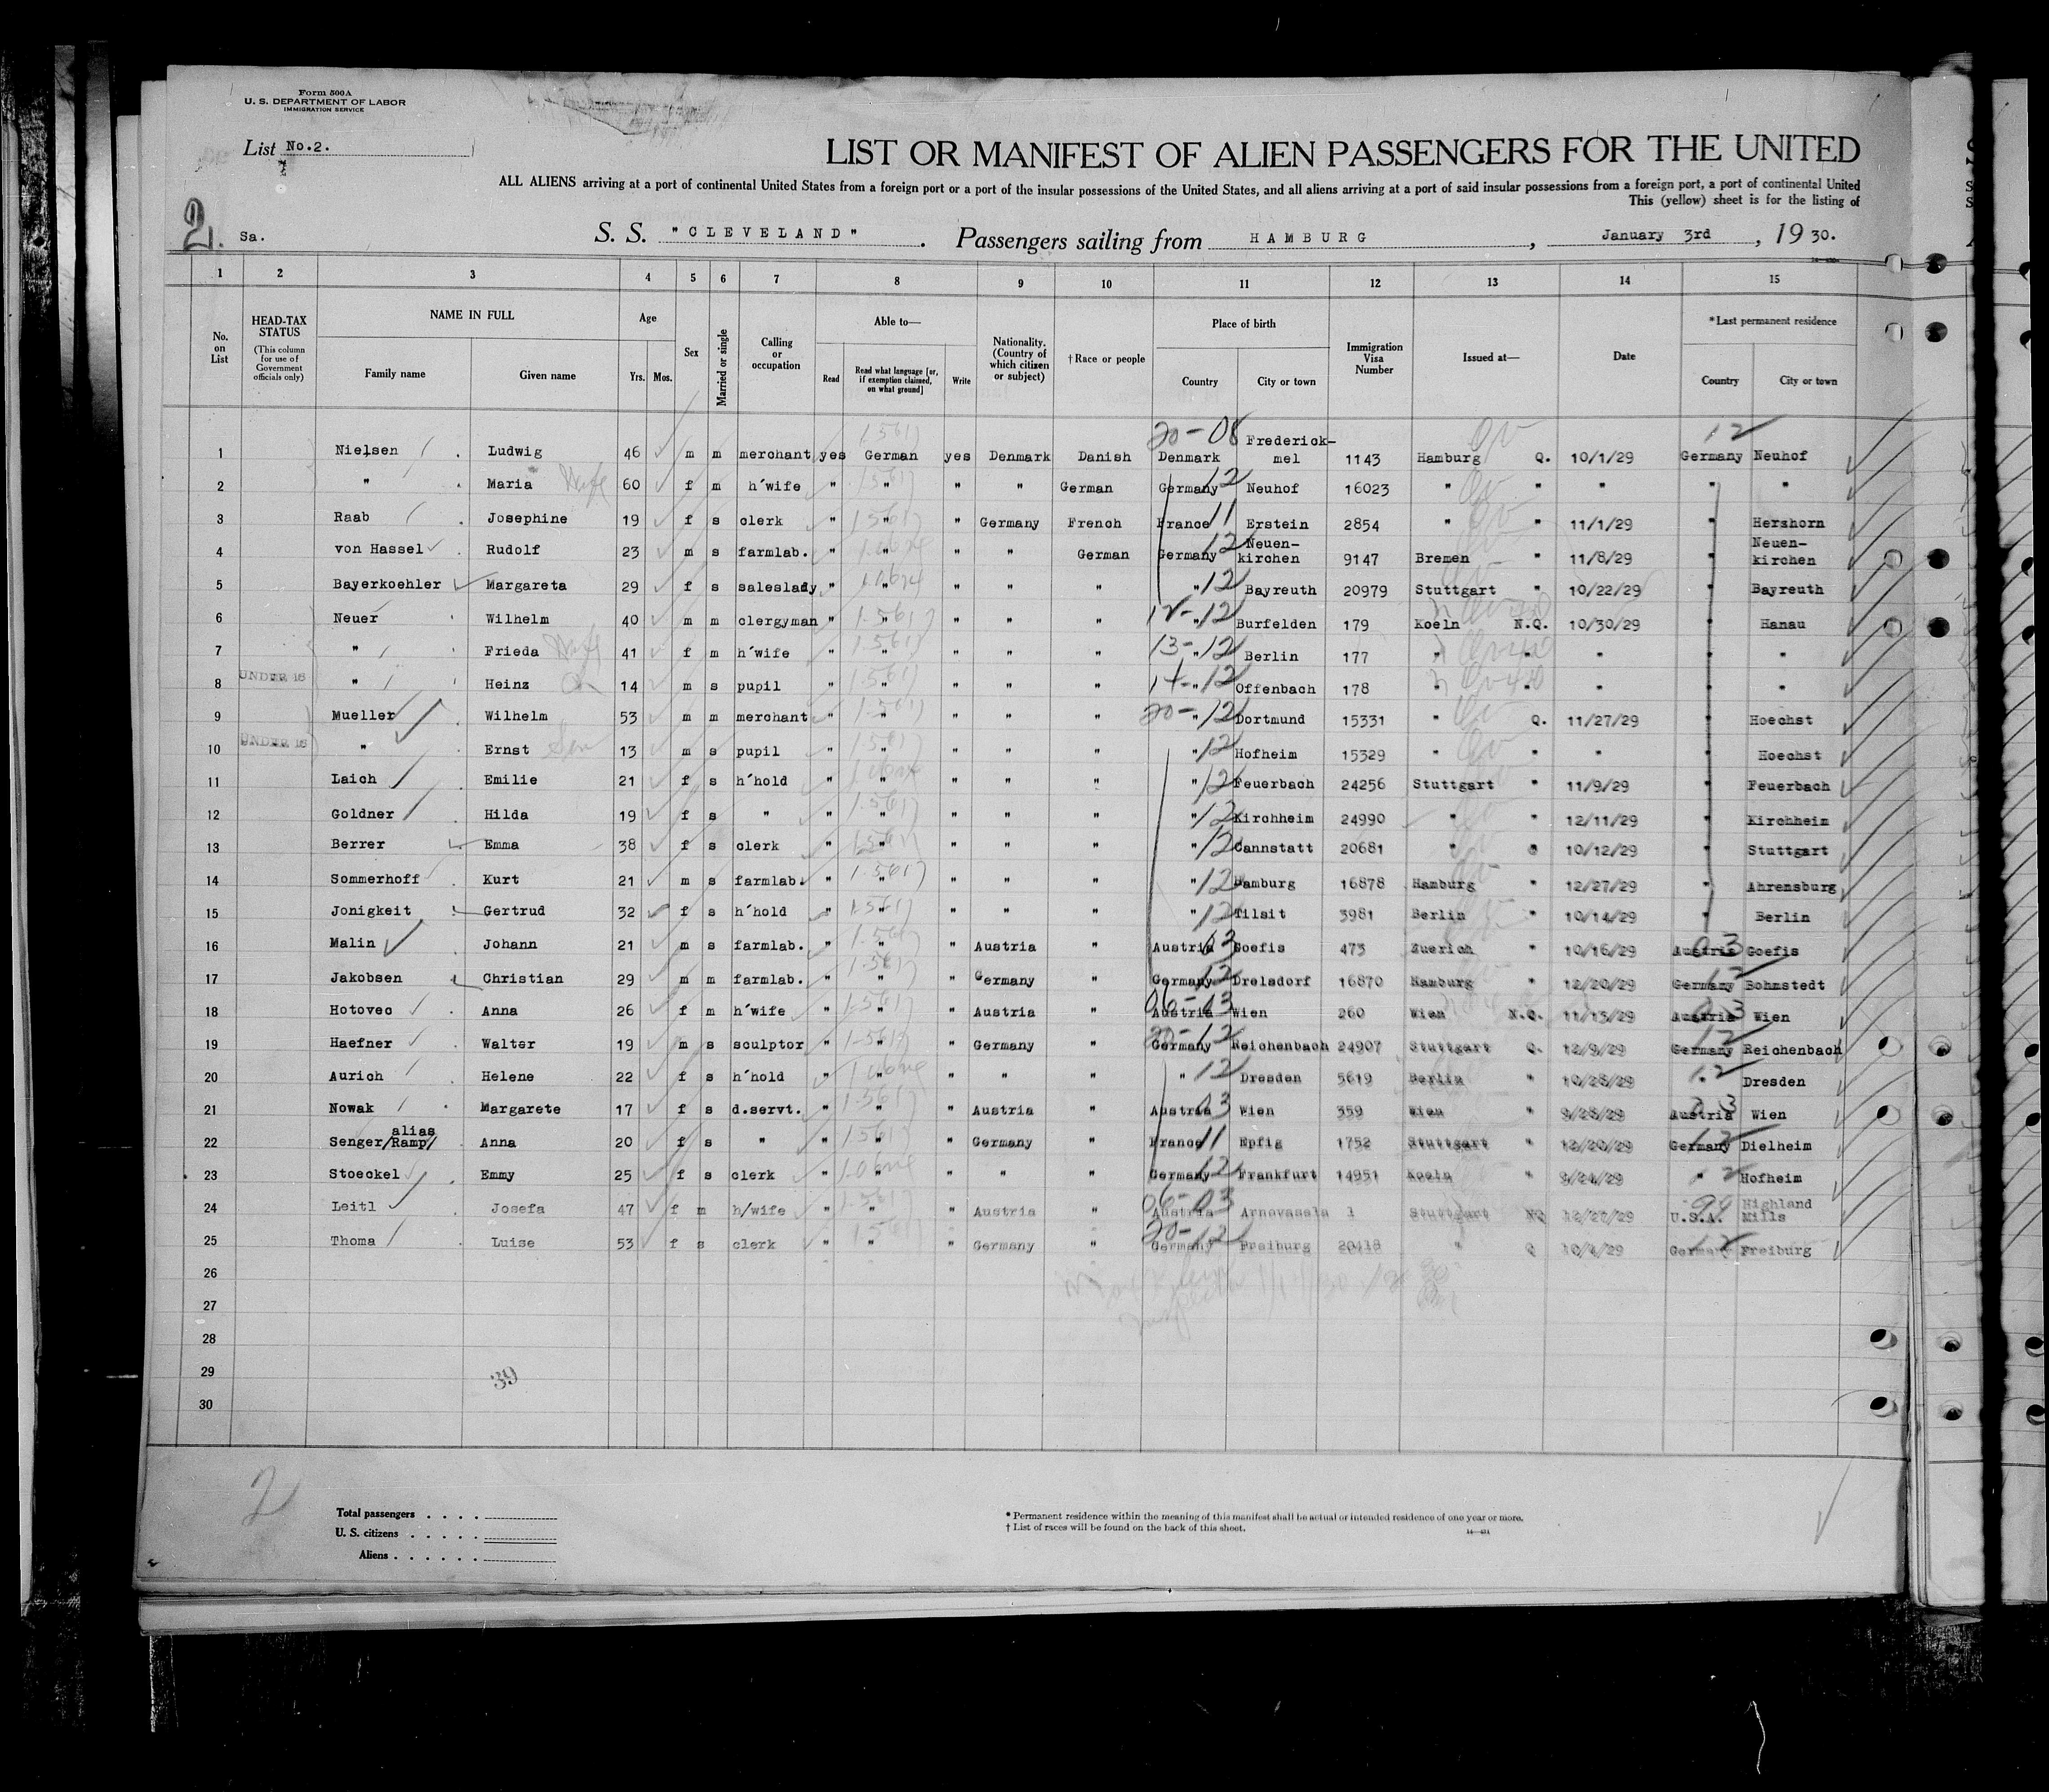 Form 500A
U. S. DEPARTMENT OF LABOR
IMMIGRATION SERVICE
List No.2.
LIST OR MANIFEST OF ALIEN PASSENGERS FOR THE UNITED
ALL ALIENS arriving at a port of continental United States from a foreign port or a port of the insular possessions of the United States, and all aliens arriving at a port of said insular possessions from a foreign port, a port of continental United
This (yellow) sheet is for the listing of
2. Sa. S. S. "CLEVELAND". Passengers sailing from HAMBURG, January 3rd, 19 30.
1 2 3 4 5 6 7 8 9 10 11 12 13 14 15
No. on List
HEAD-TAX STATUS
(This column for use of Government officials only)
NAME IN FULL
Family name Given name
Age
Yrs. Mos.
Sex
Married or single
Calling or occupation
Able to—
Read Read what language [or, if exemption claimed, on what ground] Write
Nationality. (Country of which citizen or subject)
†Race or people
Place of birth
Country City or town
Immigration Visa Number
Issued at—
Date
*Last permanent residence
Country City or town
1 Nielsen Ludwig 46 m m merchant yes German yes Denmark Danish 20-08 Denmark Frederick-mel 1143 Hamburg Q. 10/1/29 12 Germany Neuhof
2 " Maria Wife 60 f m h'wife " " " " German Germany 12 Neuhof 16023 " " " " "
3 Raab Josephine 19 f s clerk " " " Germany French France 11 Erstein 2854 " " 11/1/29 " Herzhorn
4 von Hassel Rudolf 23 m s farmlab. " " " " German Germany 12 Neuen-kirchen 9147 Bremen " 11/8/29 " Neuen-kirchen
5 Bayerkoehler Margareta 29 f s saleslady " " " " " " 12 Bayreuth 20979 Stuttgart " 10/22/29 " Bayreuth
6 Neuer Wilhelm 40 m m clergyman " " " " " " 12 Burfelden 179 Koeln N.Q. 10/30/29 " Hanau
7 " Frieda Wife 41 f m h'wife " " " " " 13- " 12 Berlin 177 " " " " "
8 UNDER 16 " Heinz 14 m s pupil " " " " " 14- " 12 Offenbach 178 " " " " "
9 Mueller Wilhelm 53 m m merchant " " " " " 20- " 12 Dortmund 15331 " Q. 11/27/29 " Hoechst
10 UNDER 16 " Ernst Son 13 m s pupil " " " " " " 12 Hofheim 15329 " " " " Hoechst
11 Laich Emilie 21 f s h'hold " " " " " " 12 Feuerbach 24256 Stuttgart " 11/9/29 " Feuerbach
12 Goldner Hilda 19 f s " " " " " " " 12 Kirchheim 24990 " " 12/11/29 " Kirchheim
13 Berrer Emma 38 f s clerk " " " " " " 12 Cannstatt 20681 " " 10/12/29 " Stuttgart
14 Sommerhoff Kurt 21 m s farmlab. " " " " " " 12 Hamburg 16878 Hamburg " 12/27/29 " Ahrensburg
15 Jonigkeit Gertrud 32 f s h'hold " " " " " " 12 Tilsit 3981 Berlin " 10/14/29 " Berlin
16 Malin Johann 21 m s farmlab. " " " Austria " Austria 03 Goefis 473 Zuerich " 10/16/29 Austria 03 Goefis
17 Jakobsen Christian 29 m m farmlab. " " " Germany " Germany 12 Drelsdorf 16870 Hamburg " 12/20/29 Germany 12 Bohmstedt
18 Hotovec Anna 26 f m h'wife " " " Austria " 06-03 Austria Wien 260 Wien N.Q. 11/15/29 Austria 03 Wien
19 Haefner Walter 19 m s sculptor " " " Germany " 20-12 Germany Reichenbach 24907 Stuttgart Q. 12/9/29 Germany 12 Reichenbach
20 Aurich Helene 22 f s h'hold " " " " " " 12 Dresden 5619 Berlin " 10/28/29 " 12 Dresden
21 Nowak Margarete 17 f s d.servt. " " " Austria " Austria 03 Wien 359 Wien " 9/28/29 Austria 03 Wien
22 Senger alias /Ramp/ Anna 20 f s " " " " Germany " France 11 Epfig 1752 Stuttgart " 12/20/29 Germany 12 Dielheim
23 Stoeckel Emmy 25 f s clerk " " " " " Germany 12 Frankfurt 14951 Koeln " 9/24/29 " Hofheim
24 Leitl Josefa 47 f m h/wife " " " Austria " 06-03 Austria 1 Stuttgart NQ 12/27/29 99 U.S.A. Highland Mills
25 Thoma Luise 53 f s clerk " " " Germany " 20-12 Germany Freiburg 20418 " Q 10/4/29 Germany 12 Freiburg
26
27
28
29
30
39
2
Total passengers . . . .
U. S. citizens . . . . .
Aliens . . . . . .
* Permanent residence within the meaning of this manifest shall be actual or intended residence of one year or more.
† List of races will be found on the back of this sheet.